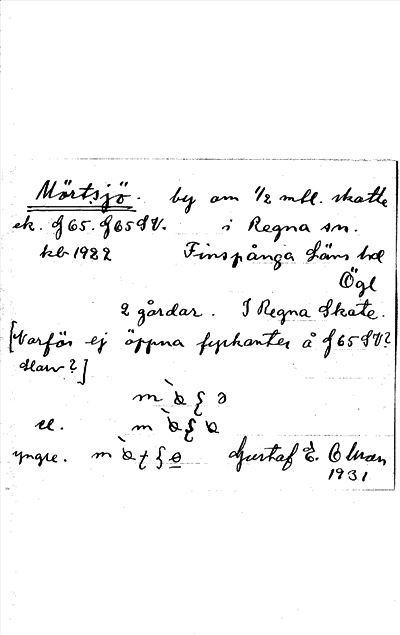 Mörtsjö. by om 1/2 mtl. skatte
ek. J65. J65SV. i Regna sn.
kb 1922 Finspånga läns hd
Ögl
2 gårdar. I Regna Skate.
[Varför ej öppna fyrkanter å J65SV?
Slarv?]
el.
yngre. Gustaf E. Olson
1931